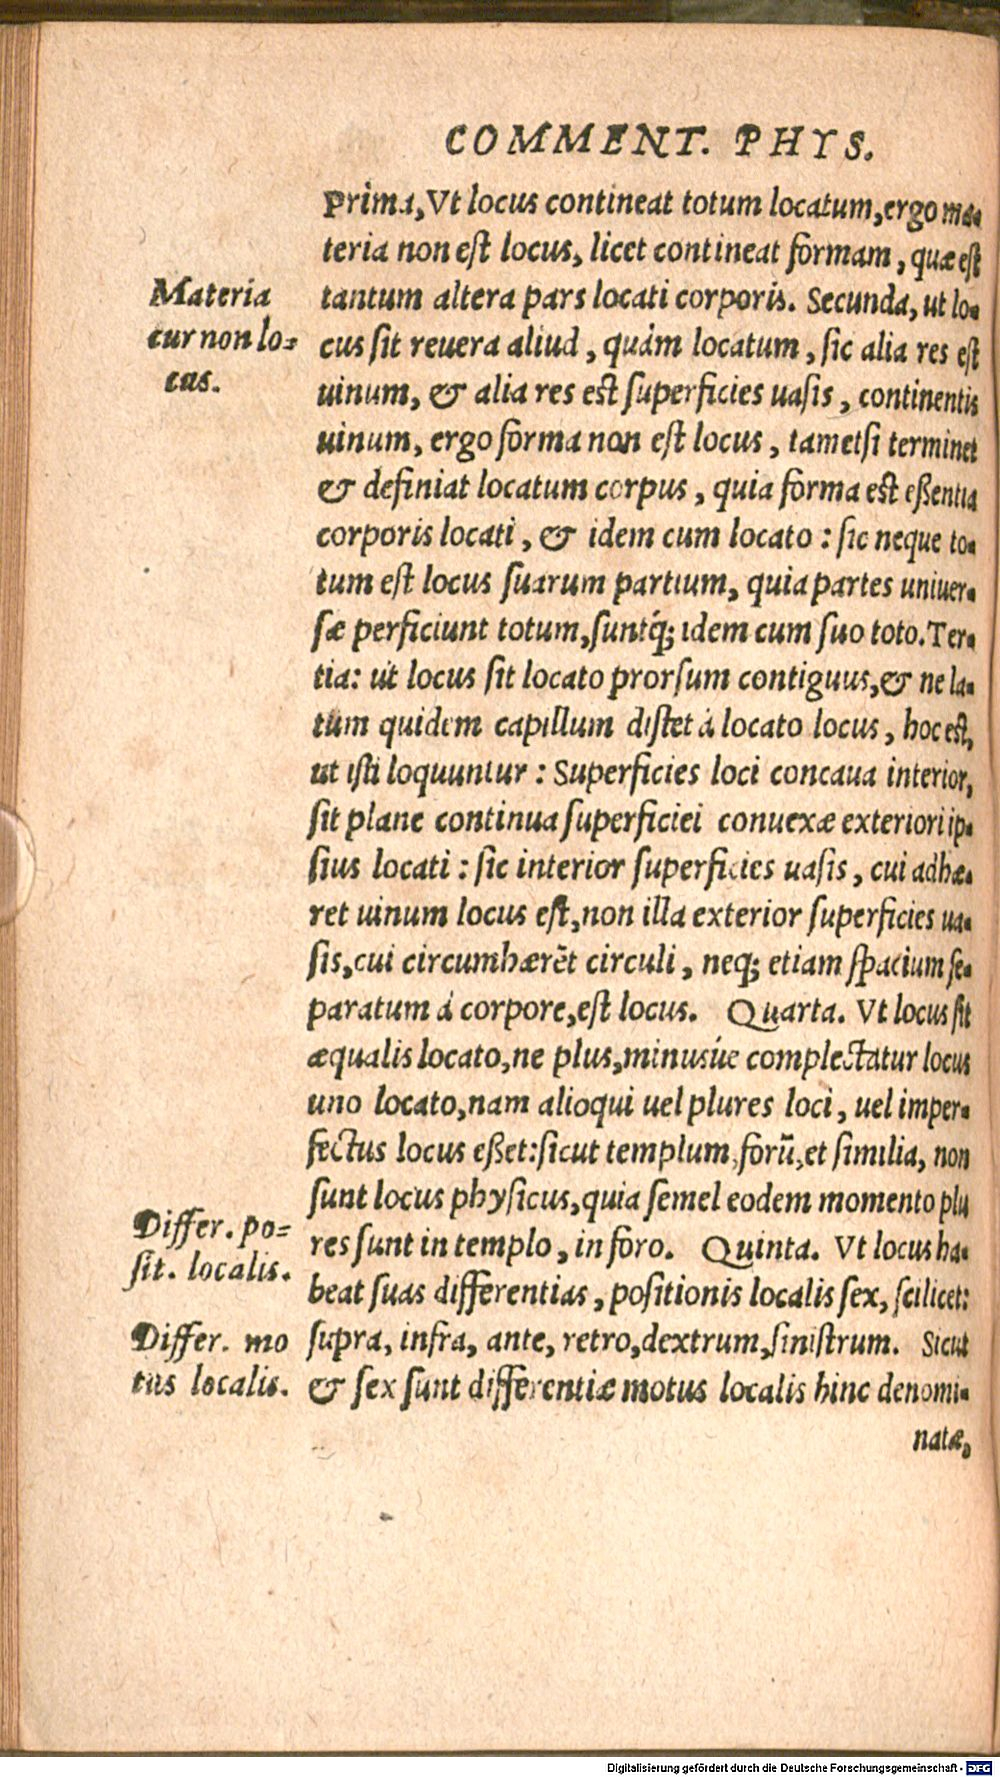 COMMENT. PHYS.
Prima, Vt locus contineat totum locatum, ergo ma-
teria non est locus, licet contineat formam, quæ est
tantum altera pars locati corporis. Secunda, ut lo-
cus sit reuera aliud, quàm locatum, sic alia res est
uinum, & alia res est superficies uasis, continentis
uinum, ergo forma non est locus, tametsi terminet
& definiat locatum corpus, quia forma est eßentia
corporis locati, & idem cum locato: sic neque to-
tum est locus suarum partium, quia partes uniuer-
sæ perficiunt totum, suntq́; idem cum suo toto. Ter-
tia: ut locus sit locato prorsum contiguus, & ne la-
tum quidem capillum distet á locato locus, hoc est,
ut isti loquuntur: Superficies loci concaua interior,
sit plane continua superficiei conuexæ exteriori ip-
sius locati: sic interior superficies uasis, cui adhæ-
ret uinum locus est, non illa exterior superficies ua-
sis, cui circumhærẽt circuli, neq; etiam spacium se-
paratum á corpore, est locus. Quarta. Vt locus sit
æqualis locato, ne plus, minusúe complectatur locus
uno locato, nam alioqui uel plures loci, uel imper-
fectus locus eßet: sicut templum, forũ, et similia, non
sunt locus physicus, quia semel eodem momento plu
res sunt in templo, in foro. Quinta. Vt locus ha-
beat suas differentias, positionis localis sex, scilicet:
supra, infra, ante, retro, dextrum, sinistrum. Sicut
& sex sunt differentiæ motus localis hinc denomi-
natæ,
Materia
cur non lo-
cus.
Differ. po-
sit. localis.
Differ. mo
tus localis.
Digitalisierung gefördert durch die Deutsche Forschungsgemeinschaft - DFG